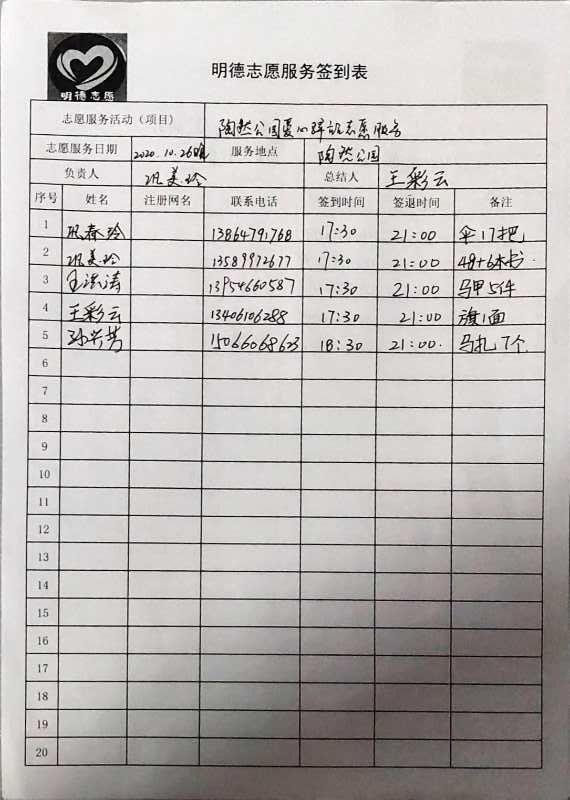 明德志愿
明德志愿服务签到表
志愿服务活动（项目） 陶然公园爱心驿站志愿服务
志愿服务日期 2020.10.26晚 服务地点 陶然公园
负责人 巩美玲 总结人 王彩云
序号 姓名 注册网名 联系电话 签到时间 签退时间 备注
1 巩春玲 13864791768 17:30 21:00 伞17把
2 巩美玲 13589972677 17:30 21:00 48+6本书
3 王洪涛 13954660587 17:30 21:00 马甲5件
4 王彩云 13406106288 17:30 21:00 旗1面
5 孙兴芳 15066068623 18:30 21:00. 马扎7个
6
7
8
9
10
11
12
13
14
15
16
17
18
19
20